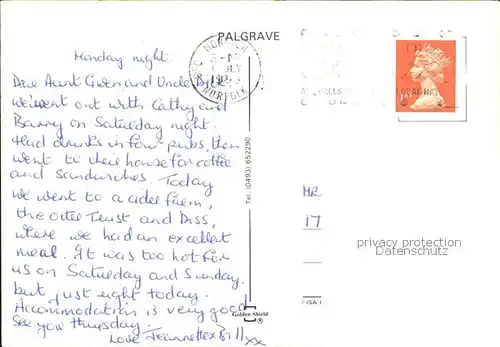 PALGRAVE
Monday night.
Dear Aunt Gwen and Uncle Dick
we went out with Cathy and
Barry on Saturday night.
Had drinks in four pubs, then
went to their house for coffee
and sandwiches. Today
we went to a cider farm,
the Otter Trust and Diss,
where we had an excellent
meal. It was too hot for
us on Saturday and Sunday.
but just right today.
Accommodation is very good
See you Thursday.
Love Jeannette x Bill xx
NORWICH
JLY
NORFOLK
Tel. (0493) 652290
Golden Shield ®
MR
17
privacy protection
Datenschutz